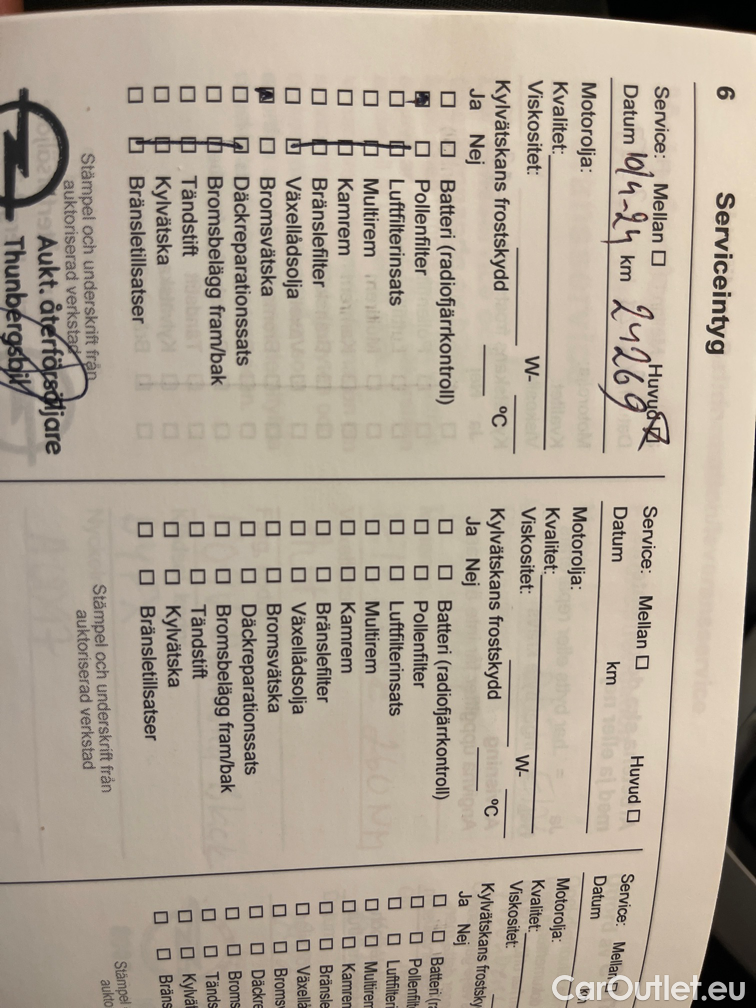 6 Serviceintyg
Service: Mellan ☐ Huvud ☒
Datum 10/4-24 km 24269
Motorolja:
Kvalitet:
Viskositet: W-
Kylvätskans frostskydd °C
Ja Nej
Batteri (radiofjärrkontroll)
Pollenfilter
Luftfilterinsats
Multirem
Kamrem
Bränslefilter
Växellådsolja
Bromsvätska
Däckreparationssats
Bromsbelägg fram/bak
Tändstift
Kylvätska
Bränsletillsatser
Stämpel och underskrift från
auktoriserad verkstad
Aukt. återförsäljare
Thunbergsbil
Service: Mellan ☐ Huvud ☐
Datum km
Motorolja:
Kvalitet:
Viskositet: W-
Kylvätskans frostskydd °C
Ja Nej
Batteri (radiofjärrkontroll)
Pollenfilter
Luftfilterinsats
Multirem
Kamrem
Bränslefilter
Växellådsolja
Bromsvätska
Däckreparationssats
Bromsbelägg fram/bak
Tändstift
Kylvätska
Bränsletillsatser
Stämpel och underskrift från
auktoriserad verkstad
Service: Mellan ☐
Datum
Motorolja:
Kvalitet:
Viskositet:
Kylvätskans frostsky
Ja Nej
Batteri (r
Pollenfil
Luftfilteri
Multirem
Kamrem
Bränsle
Växellå
Bromsv
Däckre
Broms
Tändst
Kylvä
Bräns
Stämpel
aukto
CarOutlet.eu